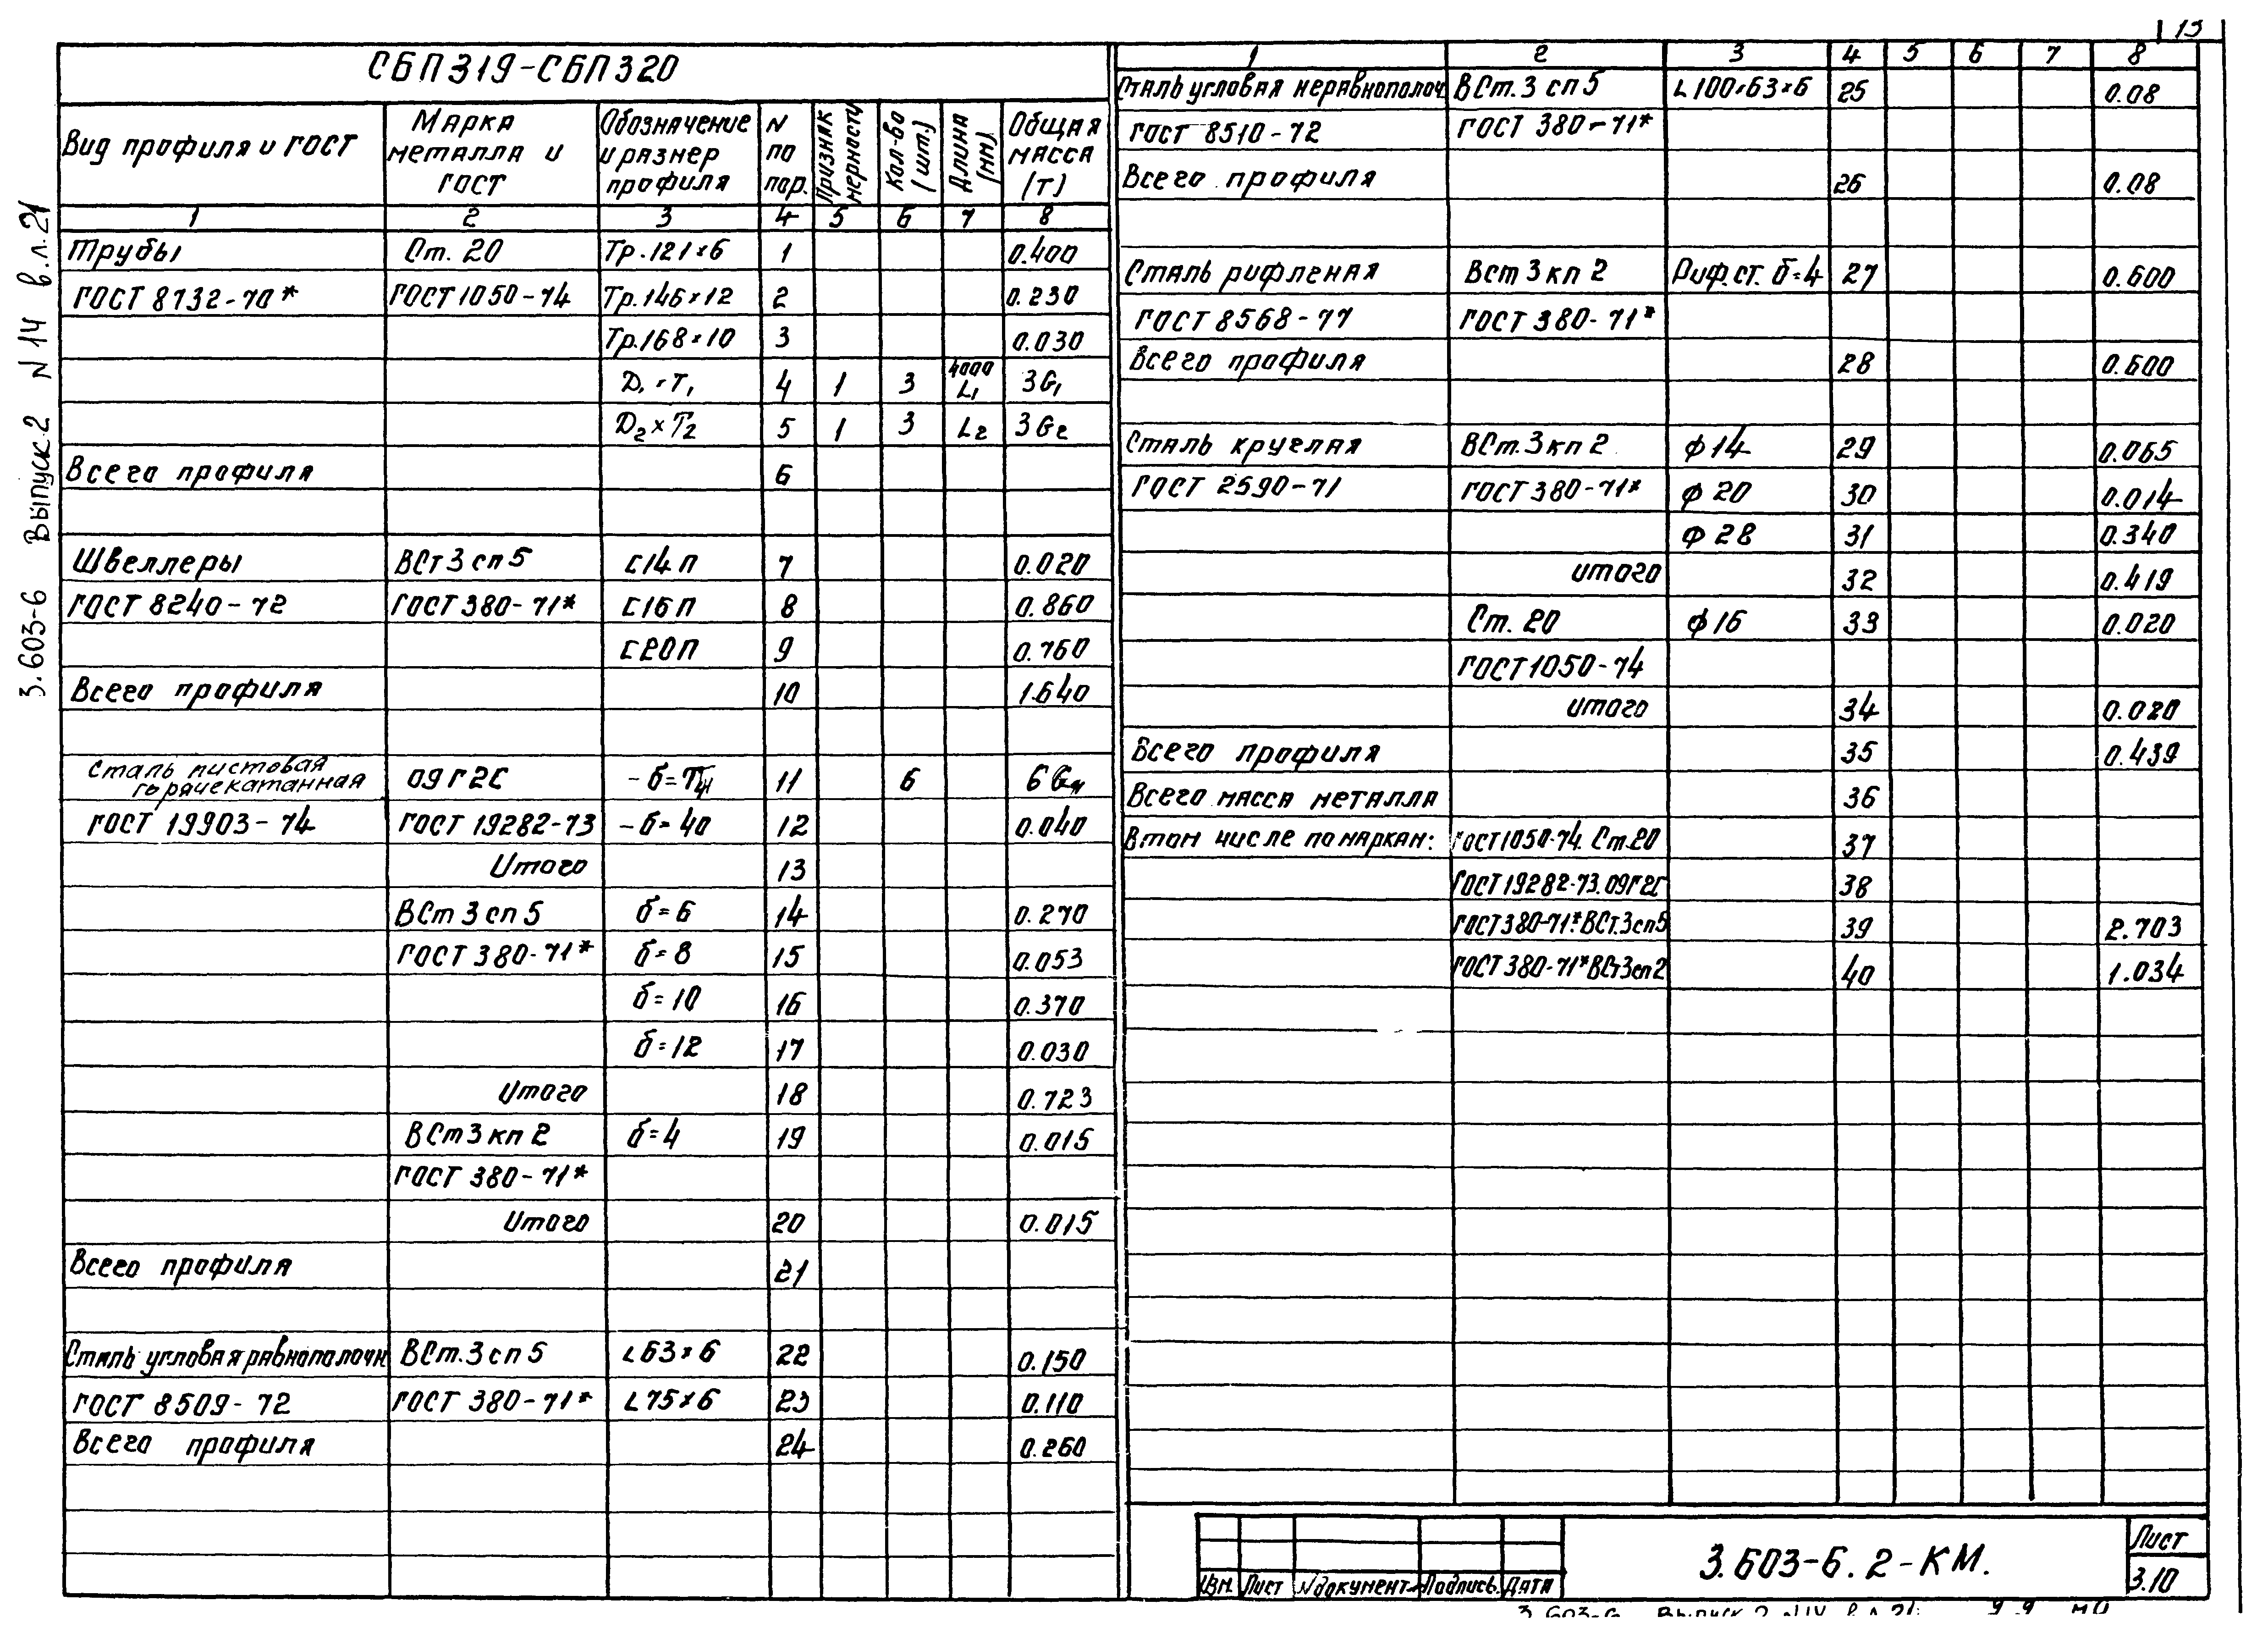 13
СБП319-СБП320
Вид профиля и ГОСТ | Марка металла и ГОСТ | Обозначение и размер профиля | N по пор. | Признак мерности | Кол-во (шт.) | Длина (мм) | Общая масса (т)
1 2 3 4 5 6 7 8
Трубы Ст. 20 Тр.121×6 1 0.400
ГОСТ 8732-70* ГОСТ 1050-74 Тр.146×12 2 0.230
Тр.168×10 3 0.030
Д1×Т1 4 1 3 4000 L1 3G1
Д2×Т2 5 1 3 L2 3G2
Всего профиля 6
Швеллеры ВСт3сп5 С14П 7 0.020
ГОСТ 8240-72 ГОСТ 380-71* С16П 8 0.860
С20П 9 0.760
Всего профиля 10 1.640
Сталь листовая
горячекатанная 09Г2С -б=Тн 11 6 6Gн
ГОСТ 19903-74 ГОСТ 19282-73 -б=40 12 0.040
Итого 13
ВСт3сп5 б=6 14 0.270
ГОСТ 380-71* б=8 15 0.053
б=10 16 0.370
б=12 17 0.030
Итого 18 0.723
ВСт3кп2 б=4 19 0.015
ГОСТ 380-71*
Итого 20 0.015
Всего профиля 21
Сталь угловая равнополочн ВСт.3сп5 L63×6 22 0.150
ГОСТ 8509-72 ГОСТ 380-71* L75×6 23 0.110
Всего профиля 24 0.260
1 2 3 4 5 6 7 8
Сталь угловая неравнополоч. ВСт.3сп5 L100×63×6 25 0.08
ГОСТ 8510-72 ГОСТ 380-71*
Всего профиля 26 0.08
Сталь рифленая ВСт3кп2 Риф.ст. б=4 27 0.600
ГОСТ 8568-77 ГОСТ 380-71*
Всего профиля 28 0.600
Сталь круглая ВСт.3кп2 ф14 29 0.065
ГОСТ 2590-71 ГОСТ 380-71* ф20 30 0.014
ф28 31 0.340
итого 32 0.419
Ст. 20 ф16 33 0.020
ГОСТ 1050-74
итого 34 0.020
Всего профиля 35 0.439
Всего масса металла 36
В том числе по маркам: ГОСТ1050-74. Ст.20 37
ГОСТ19282-73.09Г2С 38
ГОСТ380-71*.ВСт.3сп5 39 2.703
ГОСТ380-71*ВСт3сп2 40 1.034
Изм. Лист N документ. Подпись. Дата
3.603-6.2-КМ.
Лист
3.10
3.603-6 Выпуск 2 N 14 в.л.21
3.603-6 Выпуск 2 N14 в.л.21